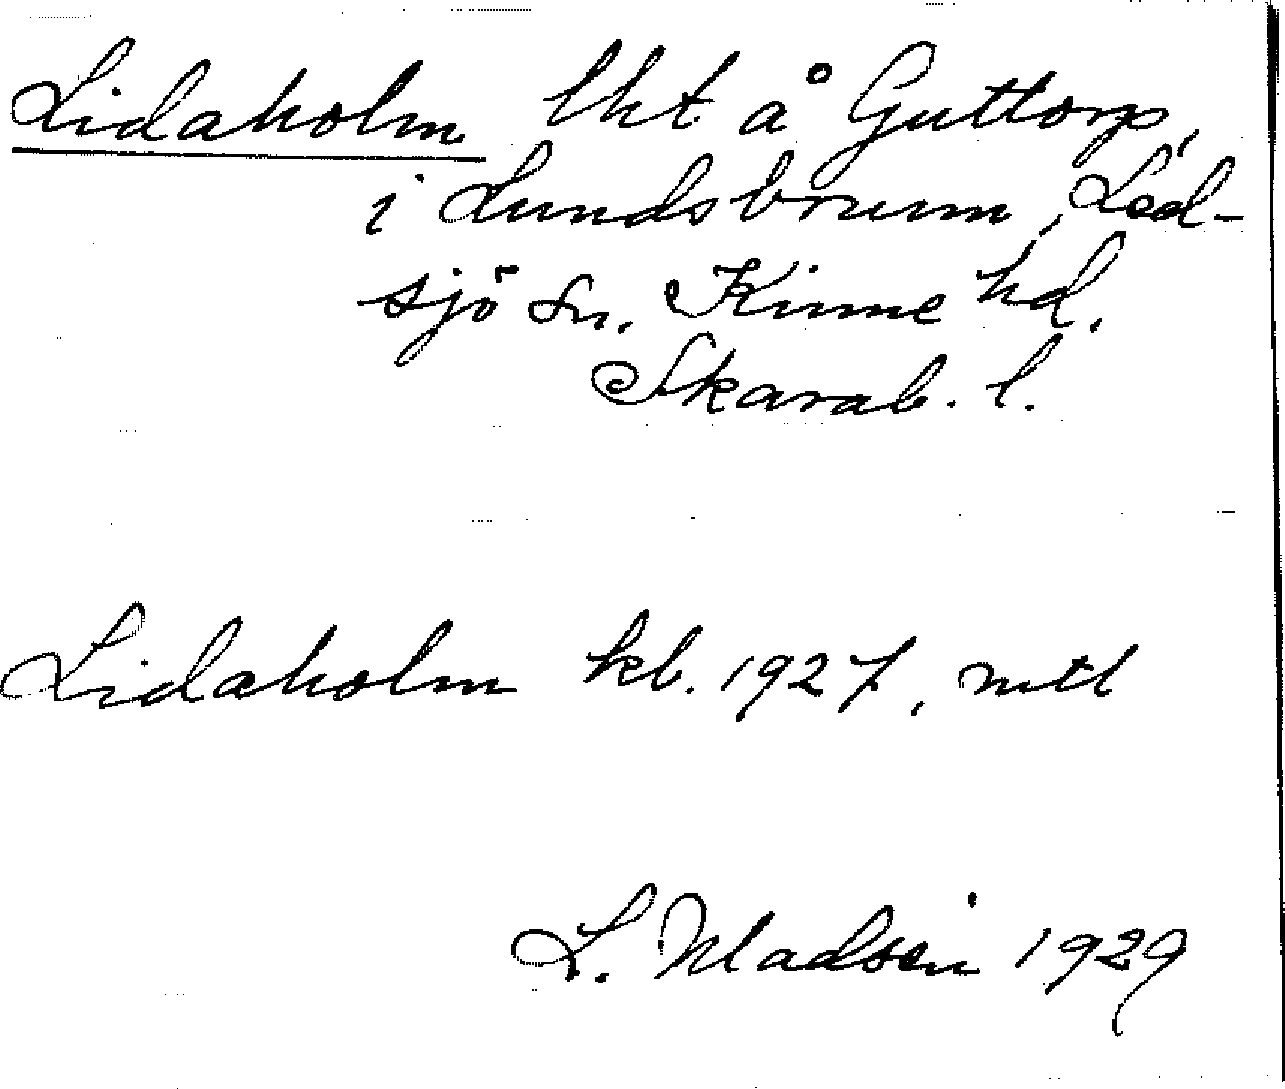 Lidaholm lht å Guttorp,
i Lundsbrunn, Led-
sjö sn. Kinne hd.
Skarab. l.
Lidaholm kb. 1927, mtl
L. Madsén 1929